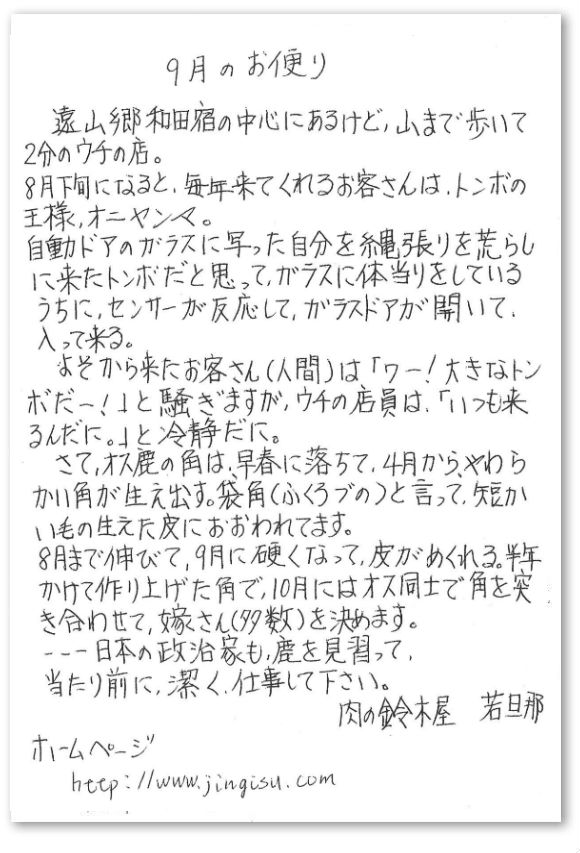 9月のお便り
遠山郷和田宿の中心にあるけど、山まで歩いて
2分のウチの店。
8月下旬になると、毎年来てくれるお客さんは、トンボの
王様、オニヤンマ。
自動ドアのガラスに写った自分を縄張りを荒らし
に来たトンボだと思って、ガラスに体当りをしている
うちに、センサーが反応して、ガラスドアが開いて、
入って来る。
よそから来たお客さん(人間)は「ワー!大きなトン
ボだー!」と騒ぎますが、ウチの店員は、「いつも来
るんだに。」と冷静だに。
さて、オス鹿の角は、早春に落ちて、4月から、やわら
かい角が生え出す。袋角(ふくろづの)と言って、短か
い毛の生えた皮におおわれてます。
8月まで伸びて、9月に硬くなって、皮がめくれる。半年
かけて作り上げた角で、10月にはオス同士で角を突
き合わせて、嫁さん(多数)を決めます。
---日本の政治家も、鹿を見習って、
当たり前に、潔く、仕事して下さい。
肉の鈴木屋 若旦那
ホームページ
http://www.jingisu.com